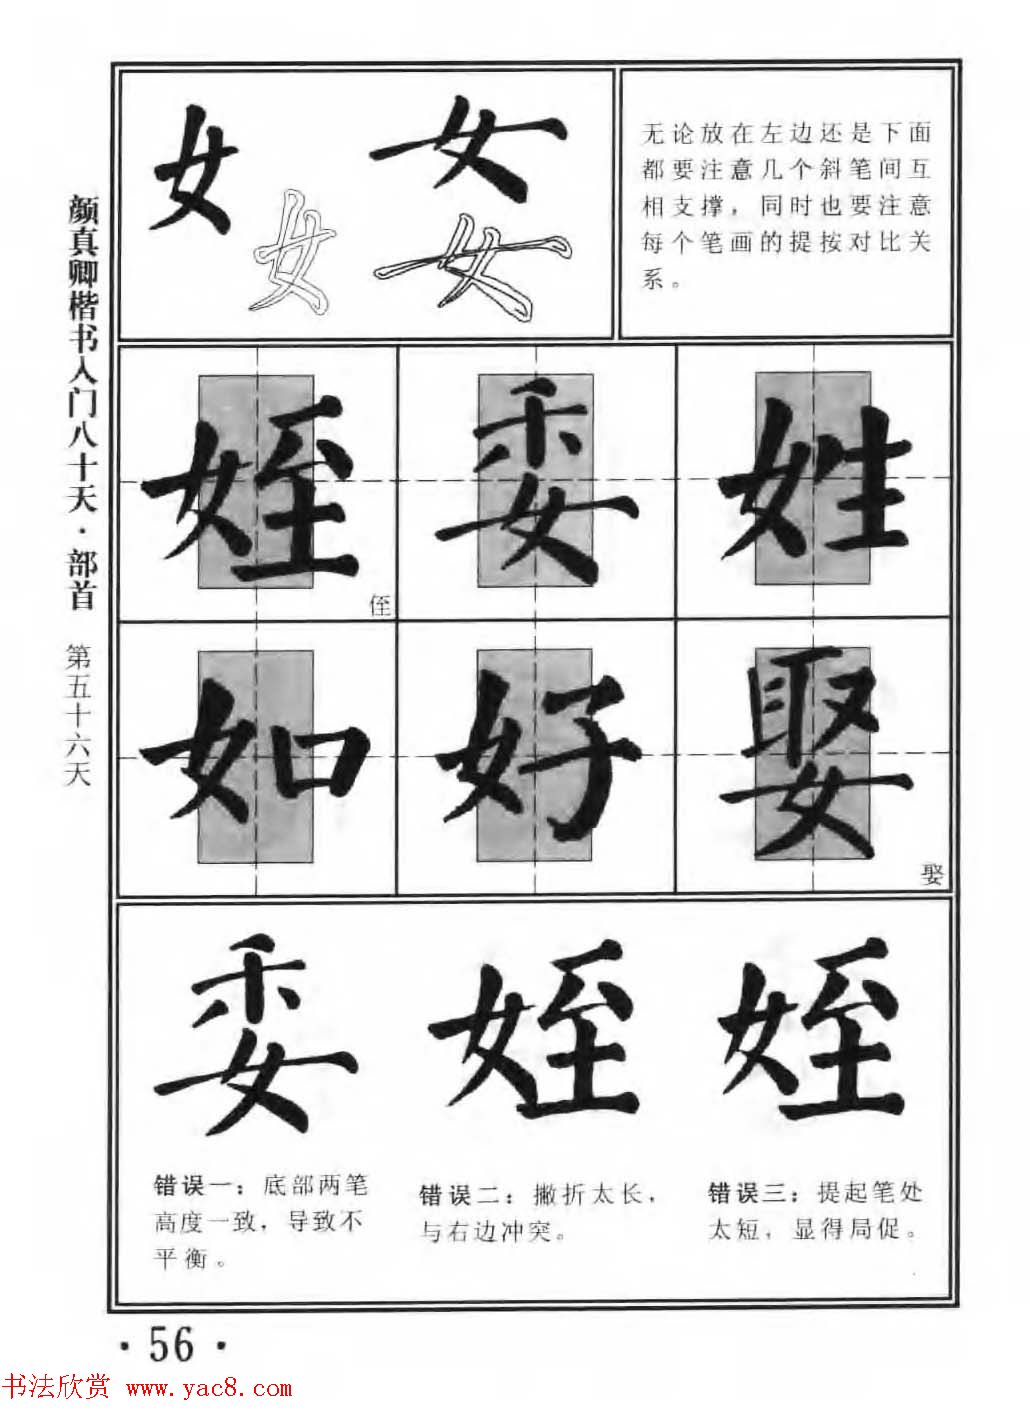 颜真卿楷书入门八十天·部首 第五十六天
女 女
女 女
无论放在左边还是下面
都要注意几个斜笔间互
相支撑，同时也要注意
每个笔画的提按对比关
系。
姪 委 姓
侄
如 好 娶
娶
委 姪 姪
错误一：底部两笔
高度一致，导致不
平衡。
错误二：撇折太长，
与右边冲突。
错误三：提起笔处
太短，显得局促。
·56·
书法欣赏 www.yac8.com